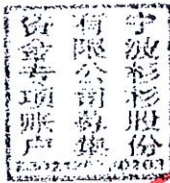 宁波杉杉股份
有限公司募集
资金专项账户